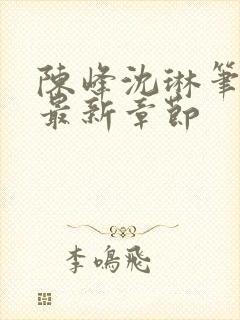 陳峰沈琳筆
最新章節
李鳴飛